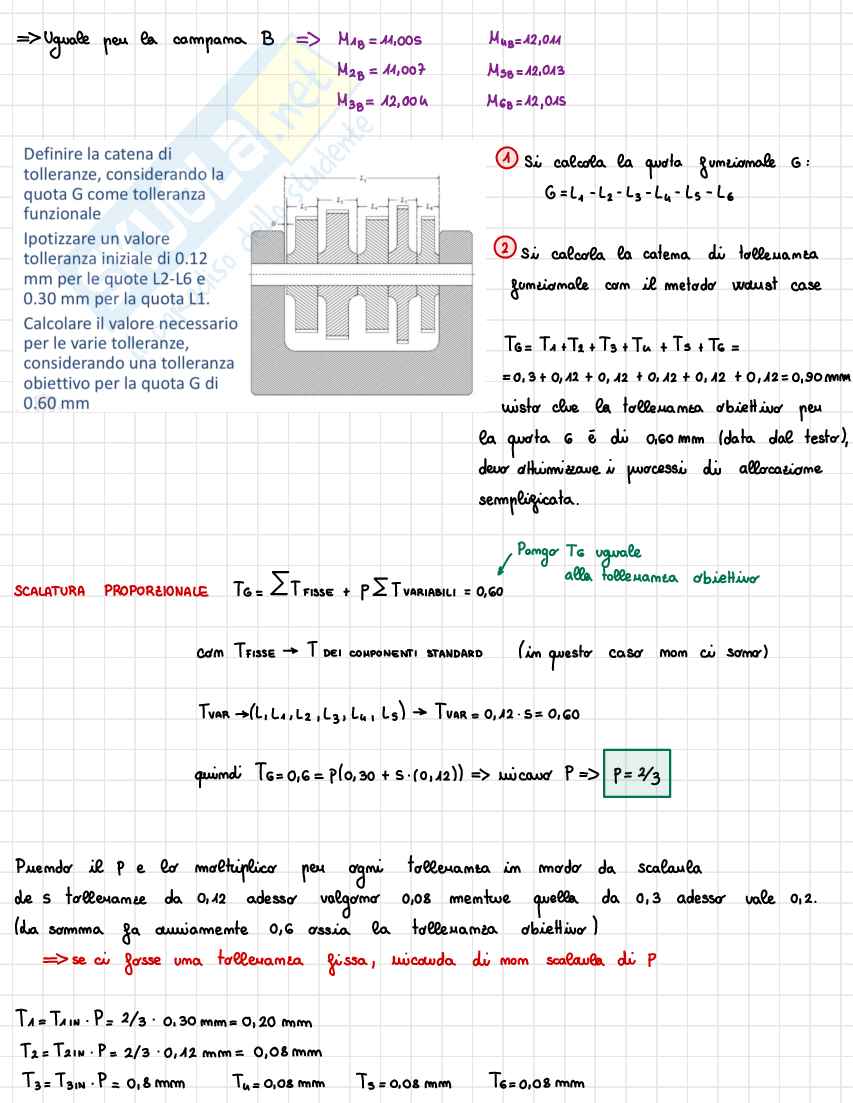 => Uguale per la campana B => M1B = 11,005 M4B = 12,011
M2B = 11,007 M5B = 12,013
M3B = 12,004 M6B = 12,015
Definire la catena di
tolleranze, considerando la
quota G come tolleranza
funzionale
Ipotizzare un valore
tolleranza iniziale di 0.12
mm per le quote L2-L6 e
0.30 mm per la quota L1.
Calcolare il valore necessario
per le varie tolleranze,
considerando una tolleranza
obiettivo per la quota G di
0.60 mm
1 Si calcola la quota funzionale G:
G = L1 - L2 - L3 - L4 - L5 - L6
2 Si calcola la catena di tolleranza
funzionale con il metodo worst case
TG = T1 + T2 + T3 + T4 + T5 + T6 =
= 0,3 + 0,12 + 0,12 + 0,12 + 0,12 + 0,12 = 0,90 mm
visto che la tolleranza obiettivo per
la quota G è di 0,60 mm (data dal testo),
devo ottimizzare i processi di allocazione
semplificata.
Pongo TG uguale
alla tolleranza obiettivo
SCALATURA PROPORZIONALE TG = ∑ T FISSE + P ∑ T VARIABILI = 0,60
con T FISSE → T DEI COMPONENTI STANDARD (in questo caso non ci sono)
T VAR → (L, L1, L2, L3, L4, L5) → T VAR = 0,12 · 5 = 0,60
quindi TG = 0,6 = P(0,30 + 5 · (0,12)) => ricavo P => P = 2/3
Prendo il P e lo moltiplico per ogni tolleranza in modo da scalarla
le 5 tolleranze da 0,12 adesso valgono 0,08 mentre quella da 0,3 adesso vale 0,2.
(la somma fa ovviamente 0,6 ossia la tolleranza obiettivo)
=> se ci fosse una tolleranza fissa, ricorda di non scalarla di P
T1 = T1IN · P = 2/3 · 0,30 mm = 0,20 mm
T2 = T2IN · P = 2/3 · 0,12 mm = 0,08 mm
T3 = T3IN · P = 0,8 mm T4 = 0,08 mm T5 = 0,08 mm T6 = 0,08 mm